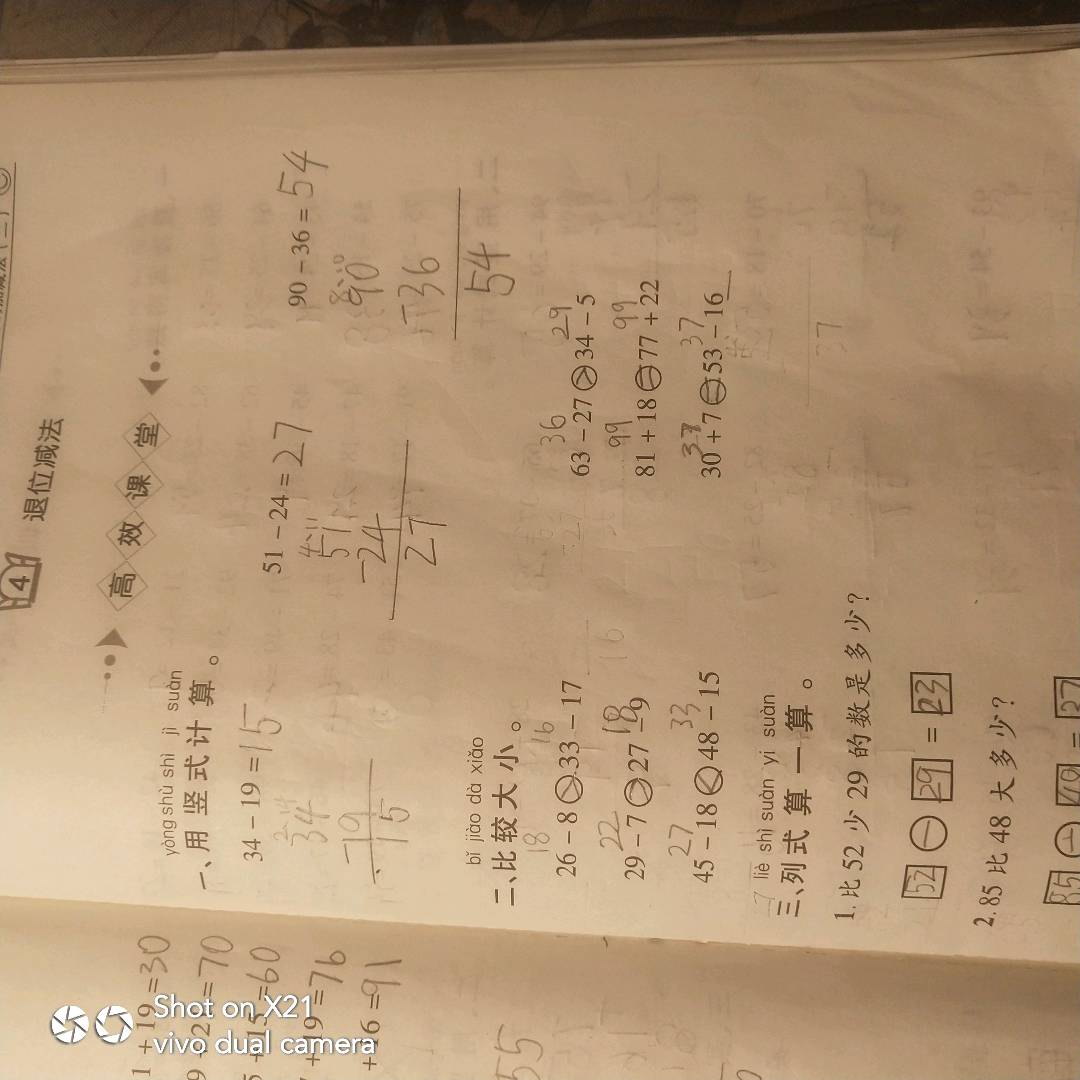 4 退位减法
高效课堂
yòng shù shì jì suàn
一、用竖式计算。
34-19=15
51-24=27
90-36=54
34
-19
15
4 11
51
-24
27
8 10
90
-36
54
bǐ jiào dà xiǎo
二、比较大小。
18 16 36 29
26-8>33-17 63-27>34-5
22 18 99 99
29-7>27-9 81+18=77+22
27 33 37 37
45-18<48-15 30+7=53-16
liè shì suàn yi suàn
三、列式算一算。
1. 比52少29的数是多少?
52-29=23
2. 85比48大多少?
85
37
1+19=30
=70
=60
19=76
+16=91
55
Shot on X21
vivo dual camera